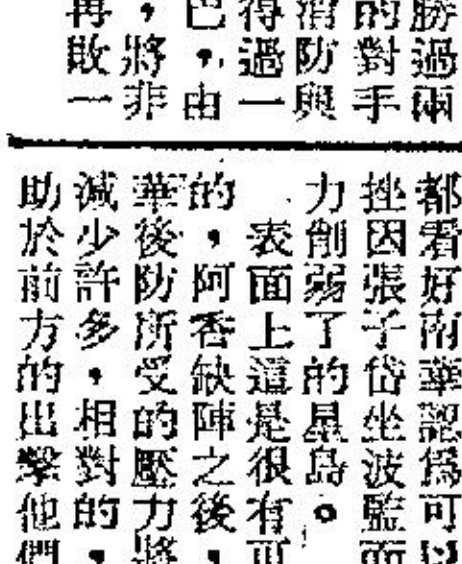 勝過兩
的對手
消防與
得過一
巴，由
，將非
再敗一
都看好南華認為可以
挫因張子岱坐波監而
力削弱了的星島。
表面上這是很有可
的，阿香缺陣之後，
華後防所受的壓力將
減少許多，相對的，
助於前方的出擊他們